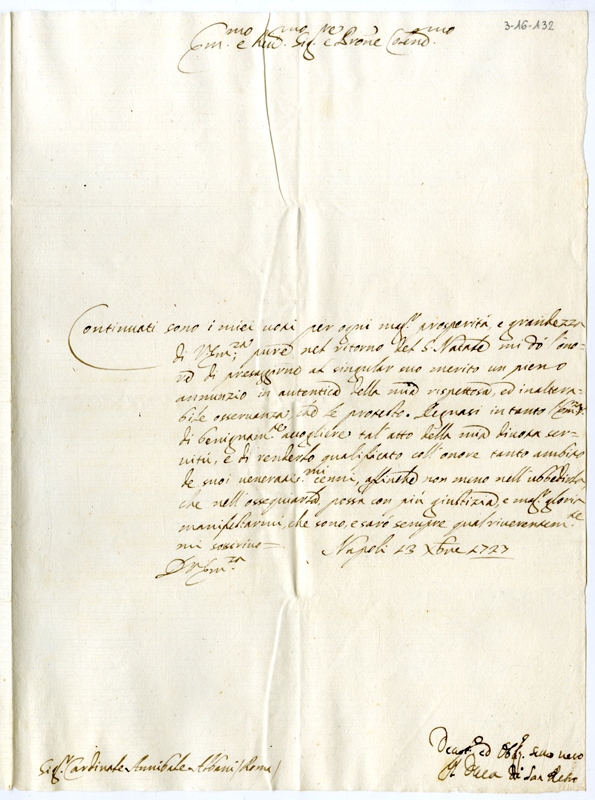 3-16-132
Em.mo e Rev.mo Sig.re e Prone Colend.mo
Continuati sono i miei voti per ogni mag.r prosperità, e grandezza
di V. Em.za; pure nel ritorno del S. Natale mi do l'ono-
re di presagirne al singular suo merito un pieno
annunzio in autentica della mia rispettosa, ed inaltera-
bile osservanza che le protesto. Degnasi in tanto l'Em.za V.
di benignam.te accogliere tal' atto della mia divota ser-
vitù, e di renderlo qualificato coll' onore tanto ambito
de suoi veneratis.mi cenni, affinche non meno nell' ubbedirla
che nell' ossequiarla possa con più giustizia, e mag.r gloria
manifestarmi, che sono, e sarò sempre qual riverentem.te
mi soscrivo=
Napoli 13 Xbre 1727
Di V. Em.za
Devot.o ed Obl.o Seruo vero
Il Duca di San Pietro
Sig.r Cardinale Annibale Albani (Roma)